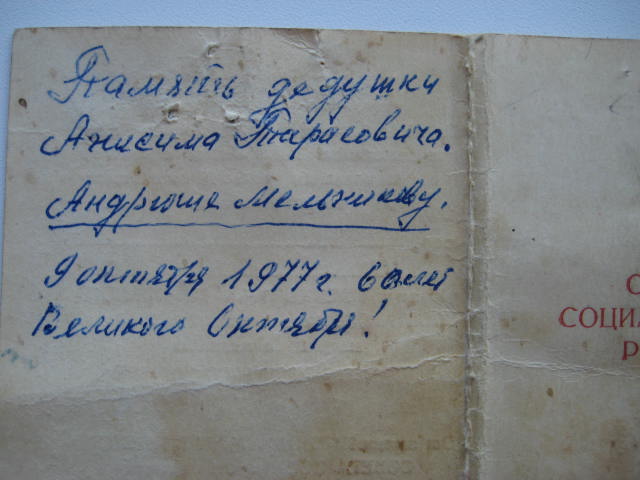 Память дедушки
Анисима Тарасовича.
Андрюше Мельникову.
9 октября 1977 г. 60 лет
Великого Октября!
С
СОЦИА
Р